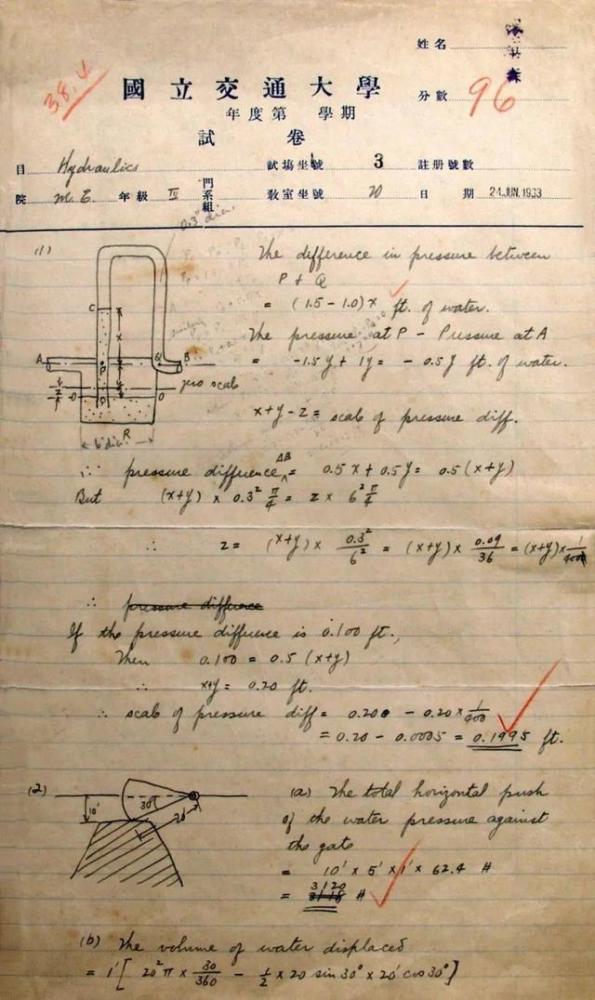 姓名
國立交通大學
38.4
分數 96
年度第 學期
試卷
目 Hydraulics 試場坐號 3 註冊號數
院 M.E. 年級 IV 門系組 教室坐號 20 日期 24.JUN.1933
0.3" dia.
(1) The difference in pressure between
P & Q
= (1.5 - 1.0)x ft. of water.
The pressure at P - Pressure at A
= -1.5y + 1y = -0.5y ft. of water.
C
A
B
P
Q
x
y
z
O
O
D
zero scale
6" dia.
R
x+y-z = scale of pressure diff.
∴ pressure difference AB = 0.5x + 0.5y = 0.5(x+y)
But (x+y) x 0.3² π/4 = z x 6² π/4
∴ z = (x+y) x 0.3²/6² = (x+y) x 0.09/36 = (x+y) x 1/400
∴ pressure difference
If the pressure difference is 0.100 ft.,
Then 0.100 = 0.5 (x+y)
∴ x+y = 0.20 ft.
∴ scale of pressure diff = 0.200 - 0.20 x 1/400
= 0.20 - 0.0005 = 0.1995 ft.
(2)
10'
30°
20'
(a) The total horizontal push
of the water pressure against
the gate
= 10' x 5' x 1' x 62.4 #
= 3120 #
(b) The volume of water displaced
= 1' [ 20² π x 30/360 - 1/2 x 20 sin 30° x 20' cos 30° ]